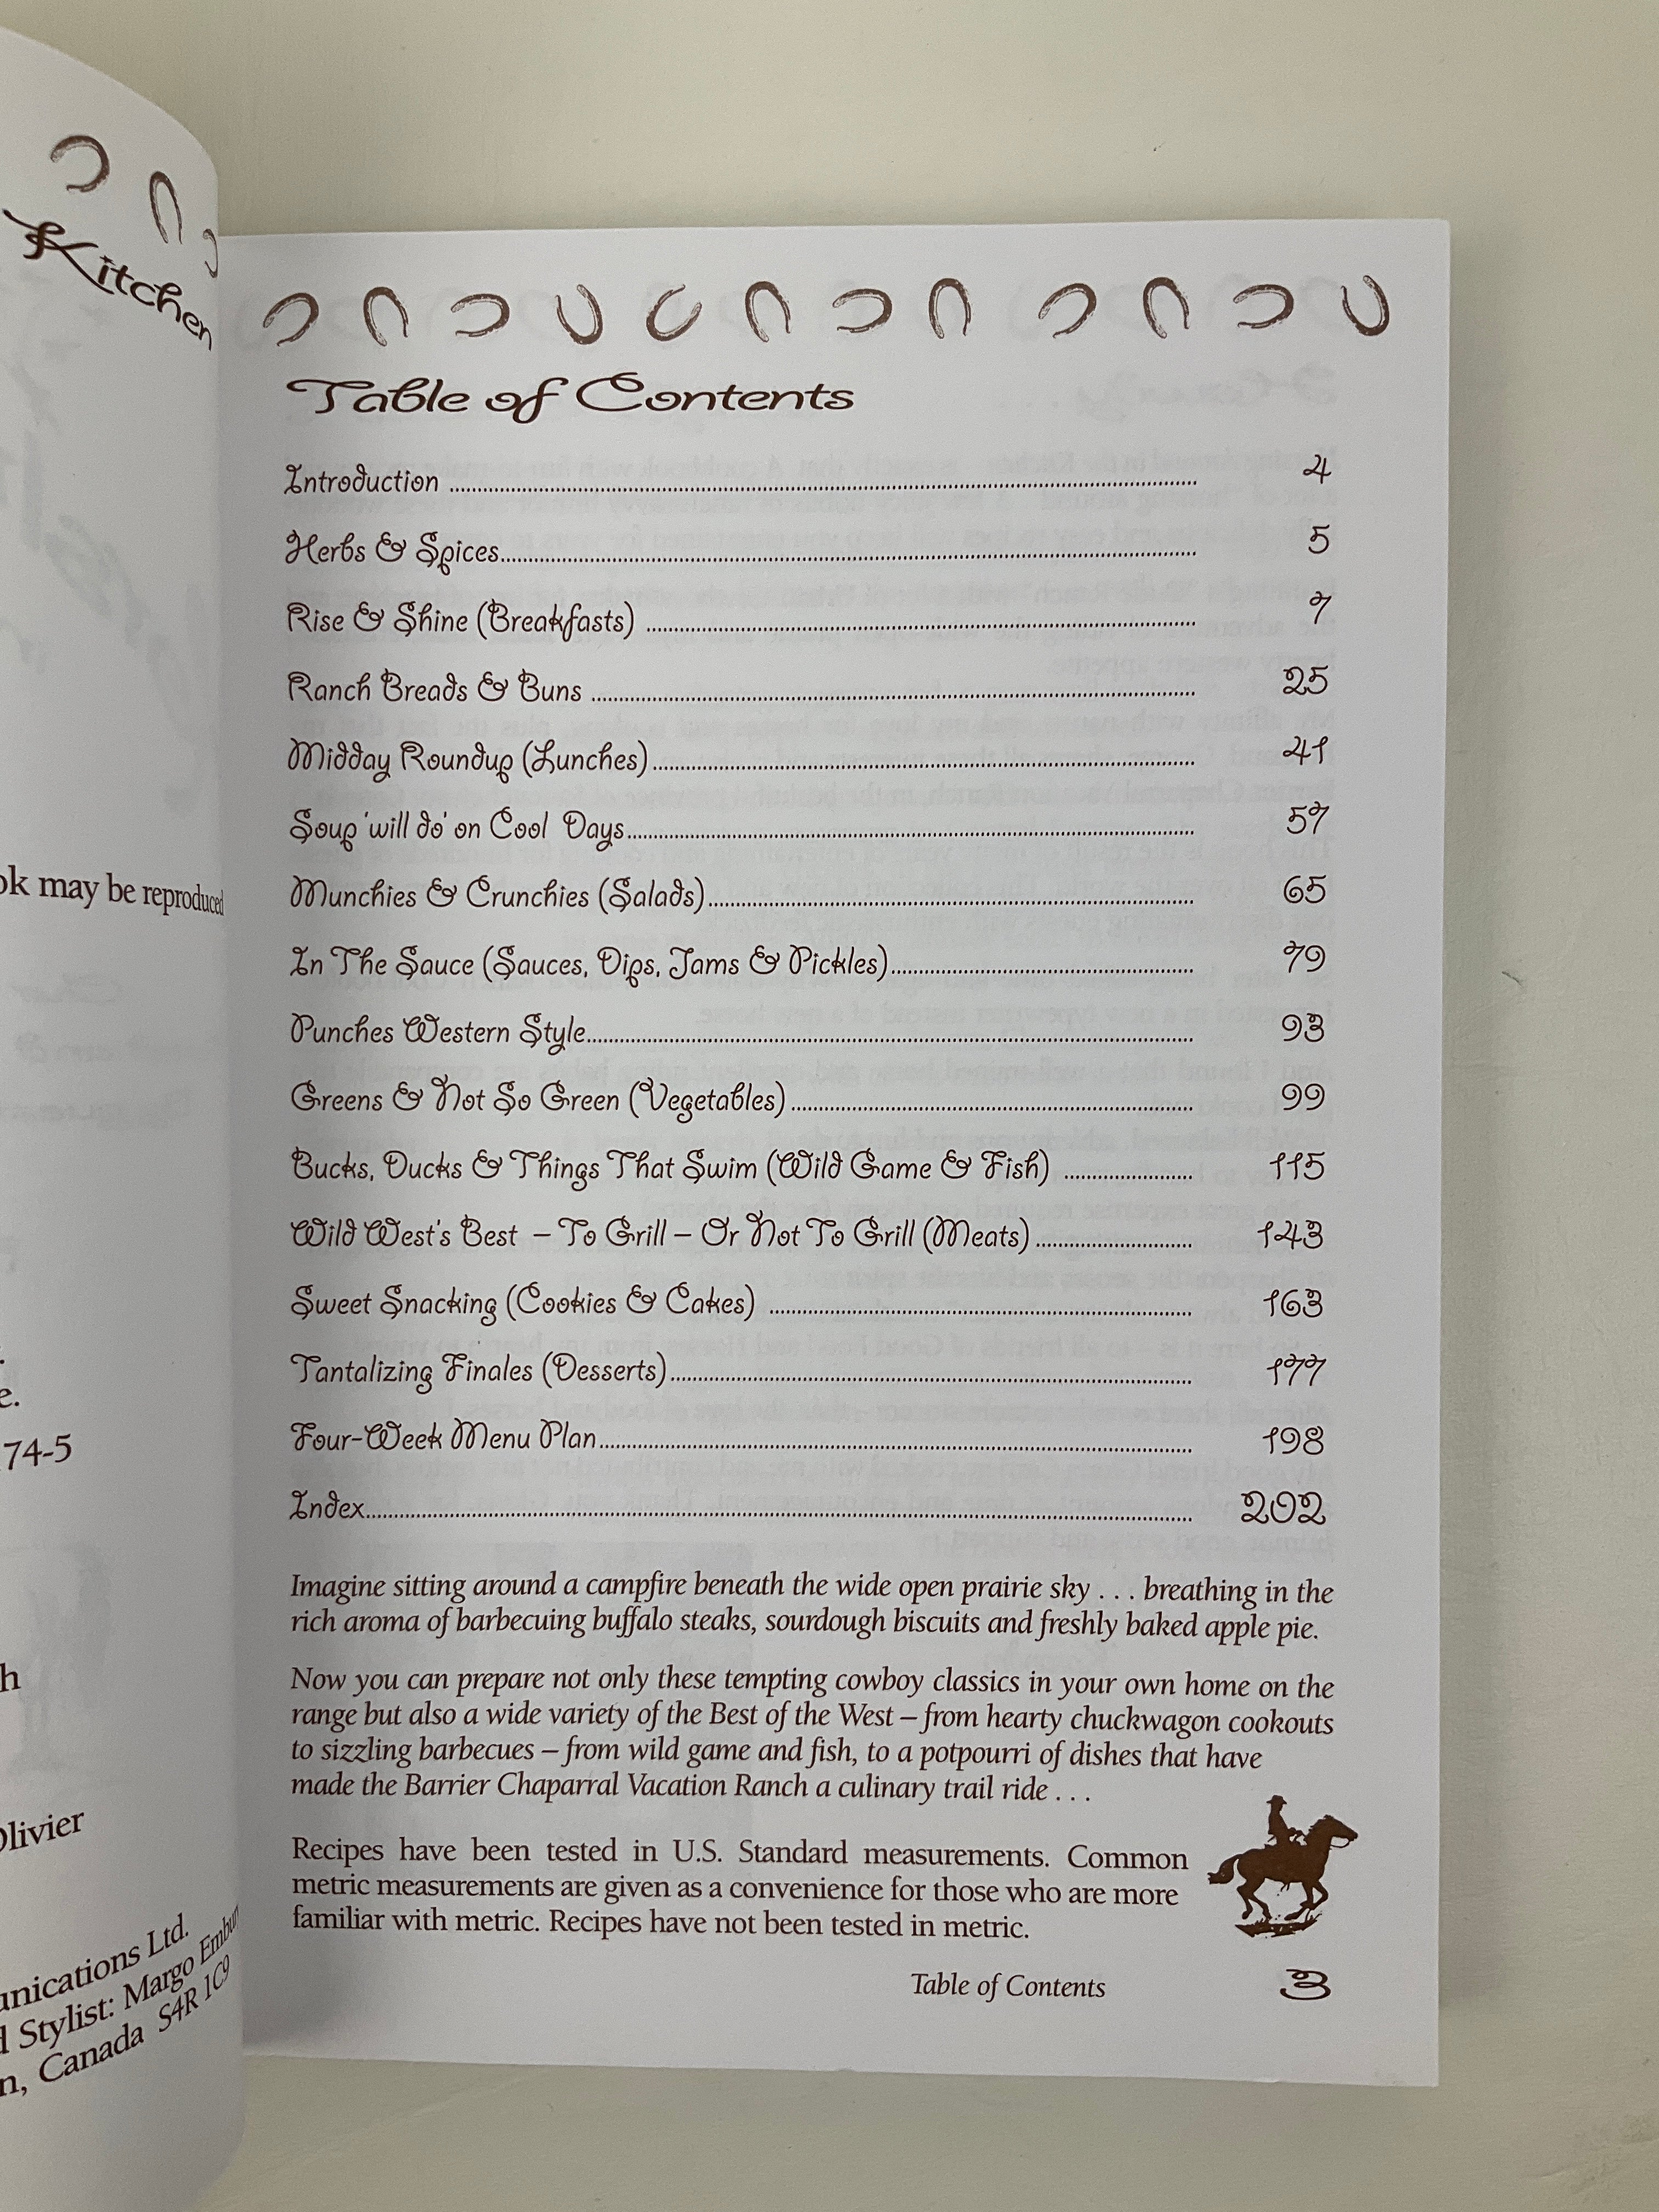 Kitchen
ok may be reproduced
e.
74-5
h
Olivier
unications Ltd.
d Stylist: Margo Embury
n, Canada S4R 1C9
Table of Contents
Introduction ........ 4
Herbs & Spices........ 5
Rise & Shine (Breakfasts) ........ 7
Ranch Breads & Buns ........ 25
Midday Roundup (Lunches)........ 41
Soup 'will do' on Cool Days........ 57
Munchies & Crunchies (Salads)........ 65
In The Sauce (Sauces, Dips, Jams & Pickles)........ 79
Punches Western Style........ 93
Greens & Not So Green (Vegetables)........ 99
Bucks, Ducks & Things That Swim (Wild Game & Fish) ........ 115
Wild West's Best – To Grill – Or Not To Grill (Meats)........ 143
Sweet Snacking (Cookies & Cakes) ........ 163
Tantalizing Finales (Desserts)........ 177
Four-Week Menu Plan........ 198
Index........ 202
Imagine sitting around a campfire beneath the wide open prairie sky . . . breathing in the
rich aroma of barbecuing buffalo steaks, sourdough biscuits and freshly baked apple pie.
Now you can prepare not only these tempting cowboy classics in your own home on the
range but also a wide variety of the Best of the West – from hearty chuckwagon cookouts
to sizzling barbecues – from wild game and fish, to a potpourri of dishes that have
made the Barrier Chaparral Vacation Ranch a culinary trail ride . . .
Recipes have been tested in U.S. Standard measurements. Common
metric measurements are given as a convenience for those who are more
familiar with metric. Recipes have not been tested in metric.
Table of Contents 3